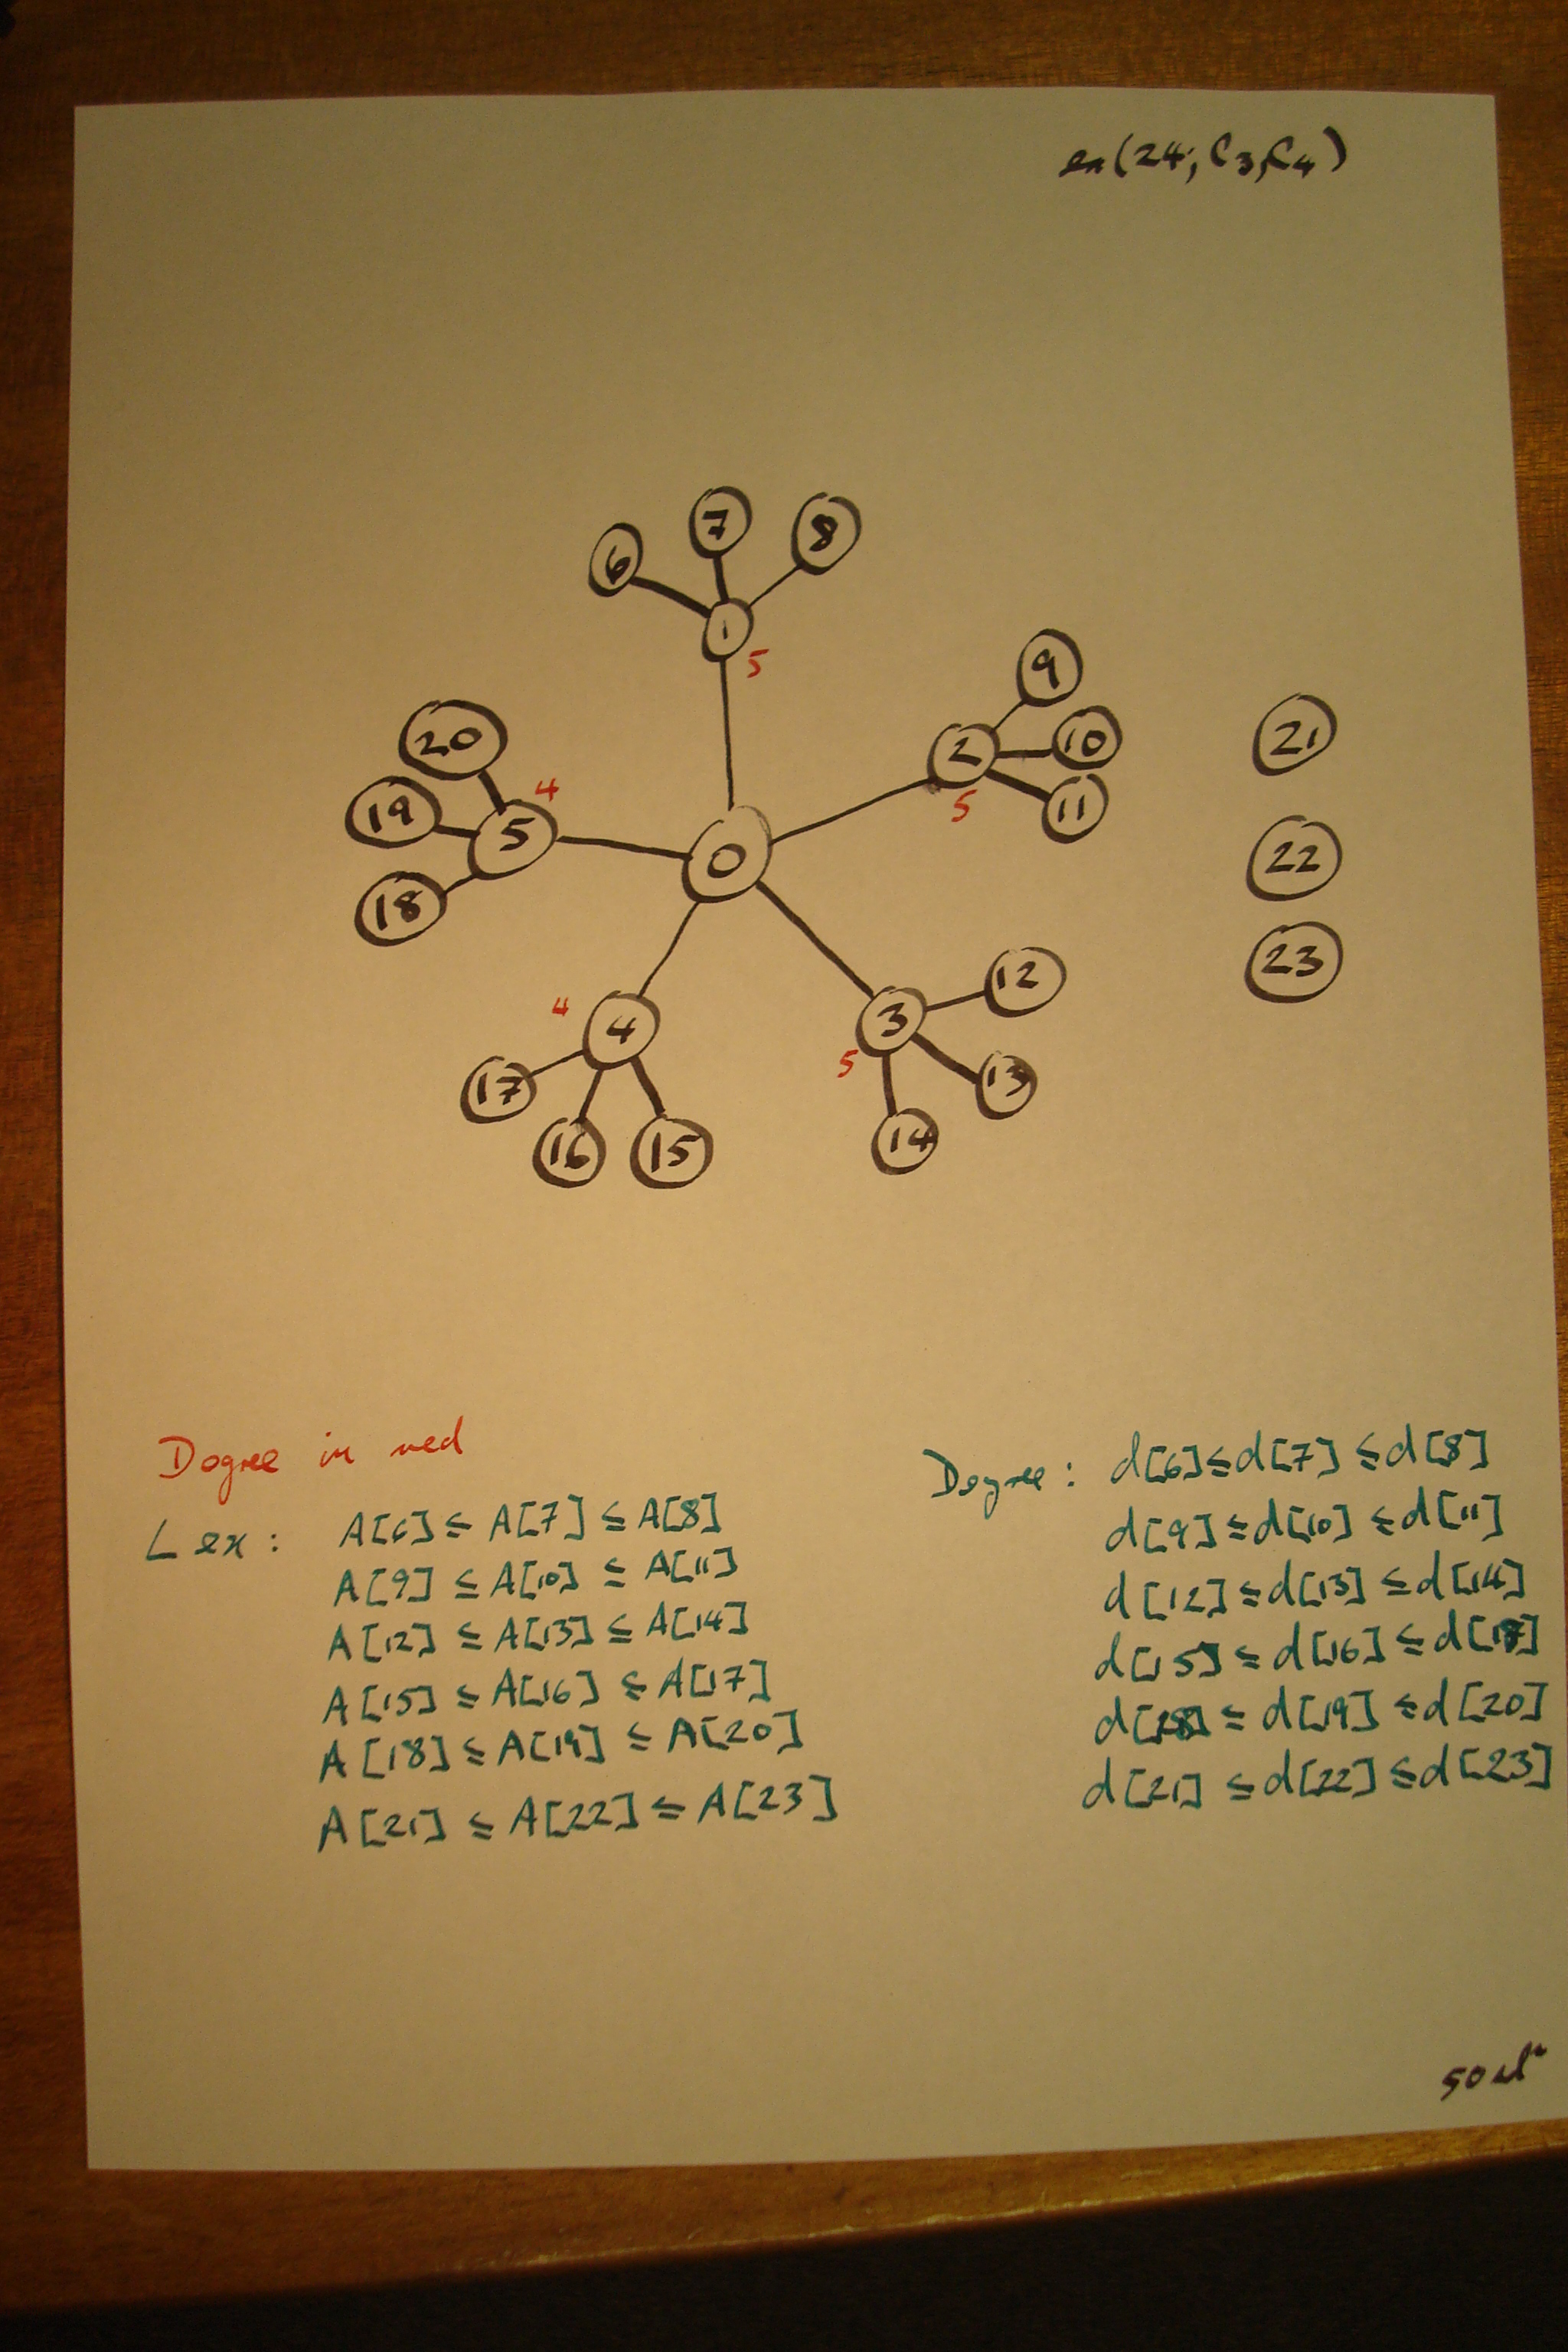 ex(24; C3,C4)
7
6
8
1
5
9
20
2
10
21
4
19
5
11
5
0
22
18
12
23
4
4
3
17
5
13
16
15
14
Degree in red
Lex: A[6] ≤ A[7] ≤ A[8]
A[9] ≤ A[10] ≤ A[11]
A[12] ≤ A[13] ≤ A[14]
A[15] ≤ A[16] ≤ A[17]
A[18] ≤ A[19] ≤ A[20]
A[21] ≤ A[22] ≤ A[23]
Degree: d[6] ≤ d[7] ≤ d[8]
d[9] ≤ d[10] ≤ d[11]
d[12] ≤ d[13] ≤ d[14]
d[15] ≤ d[16] ≤ d[17]
d[18] ≤ d[19] ≤ d[20]
d[21] ≤ d[22] ≤ d[23]